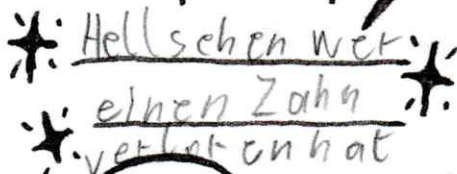 Hellsehen wer
einen Zahn
verloren hat